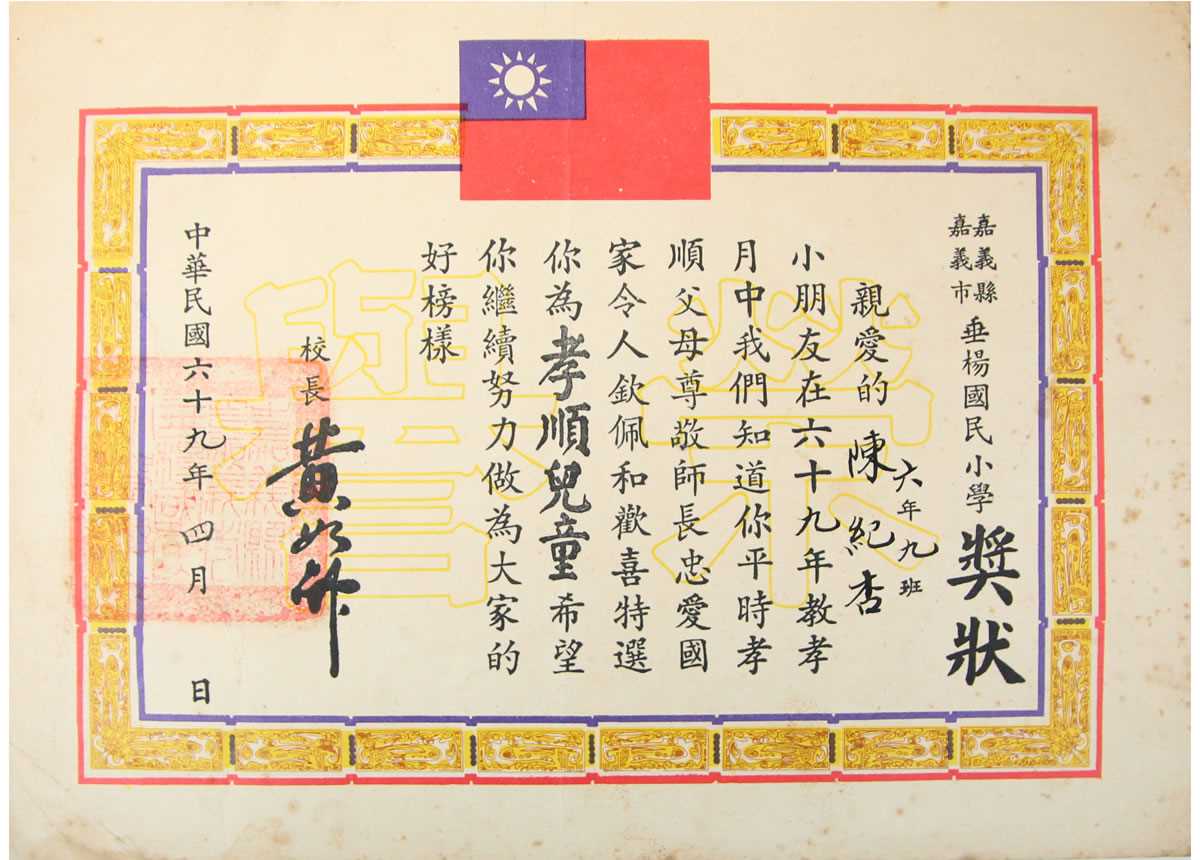 嘉義縣
嘉義市
垂楊國民小學奬狀
六年九班
親愛的 陳紀杏
小朋友在六十九年教孝
月中我們知道你平時孝
順父母尊敬師長忠愛國
家令人欽佩和歡喜特選
你為孝順兒童希望
你繼續努力做為大家的
好榜樣
校長 黃
中華民國六十九年四月 日
榮譽